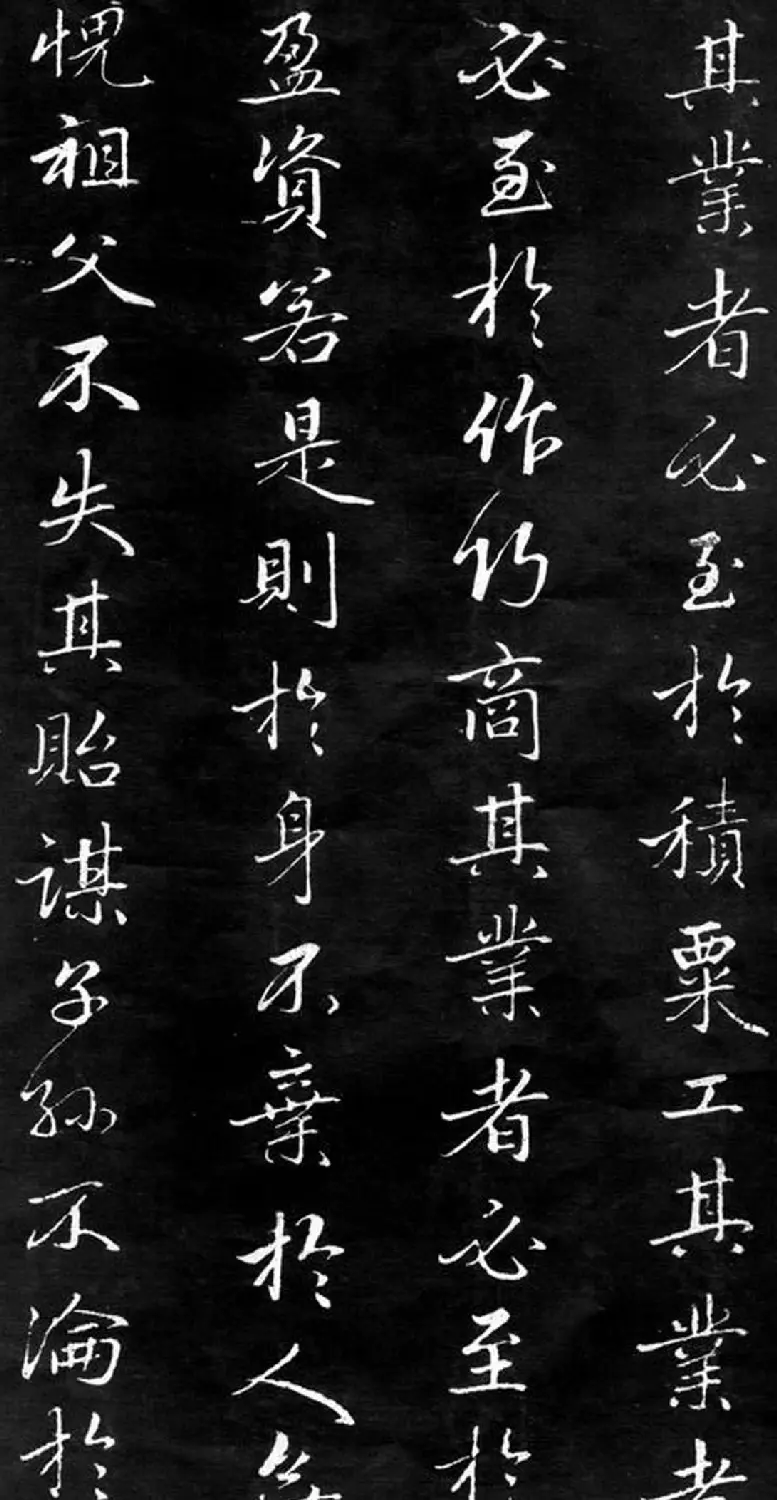 其業者必至於積粟工其業者
必至於作巧商其業者必至於
盈資若是則於身不棄於人
愧祖父不失其貽謀子孫不淪於